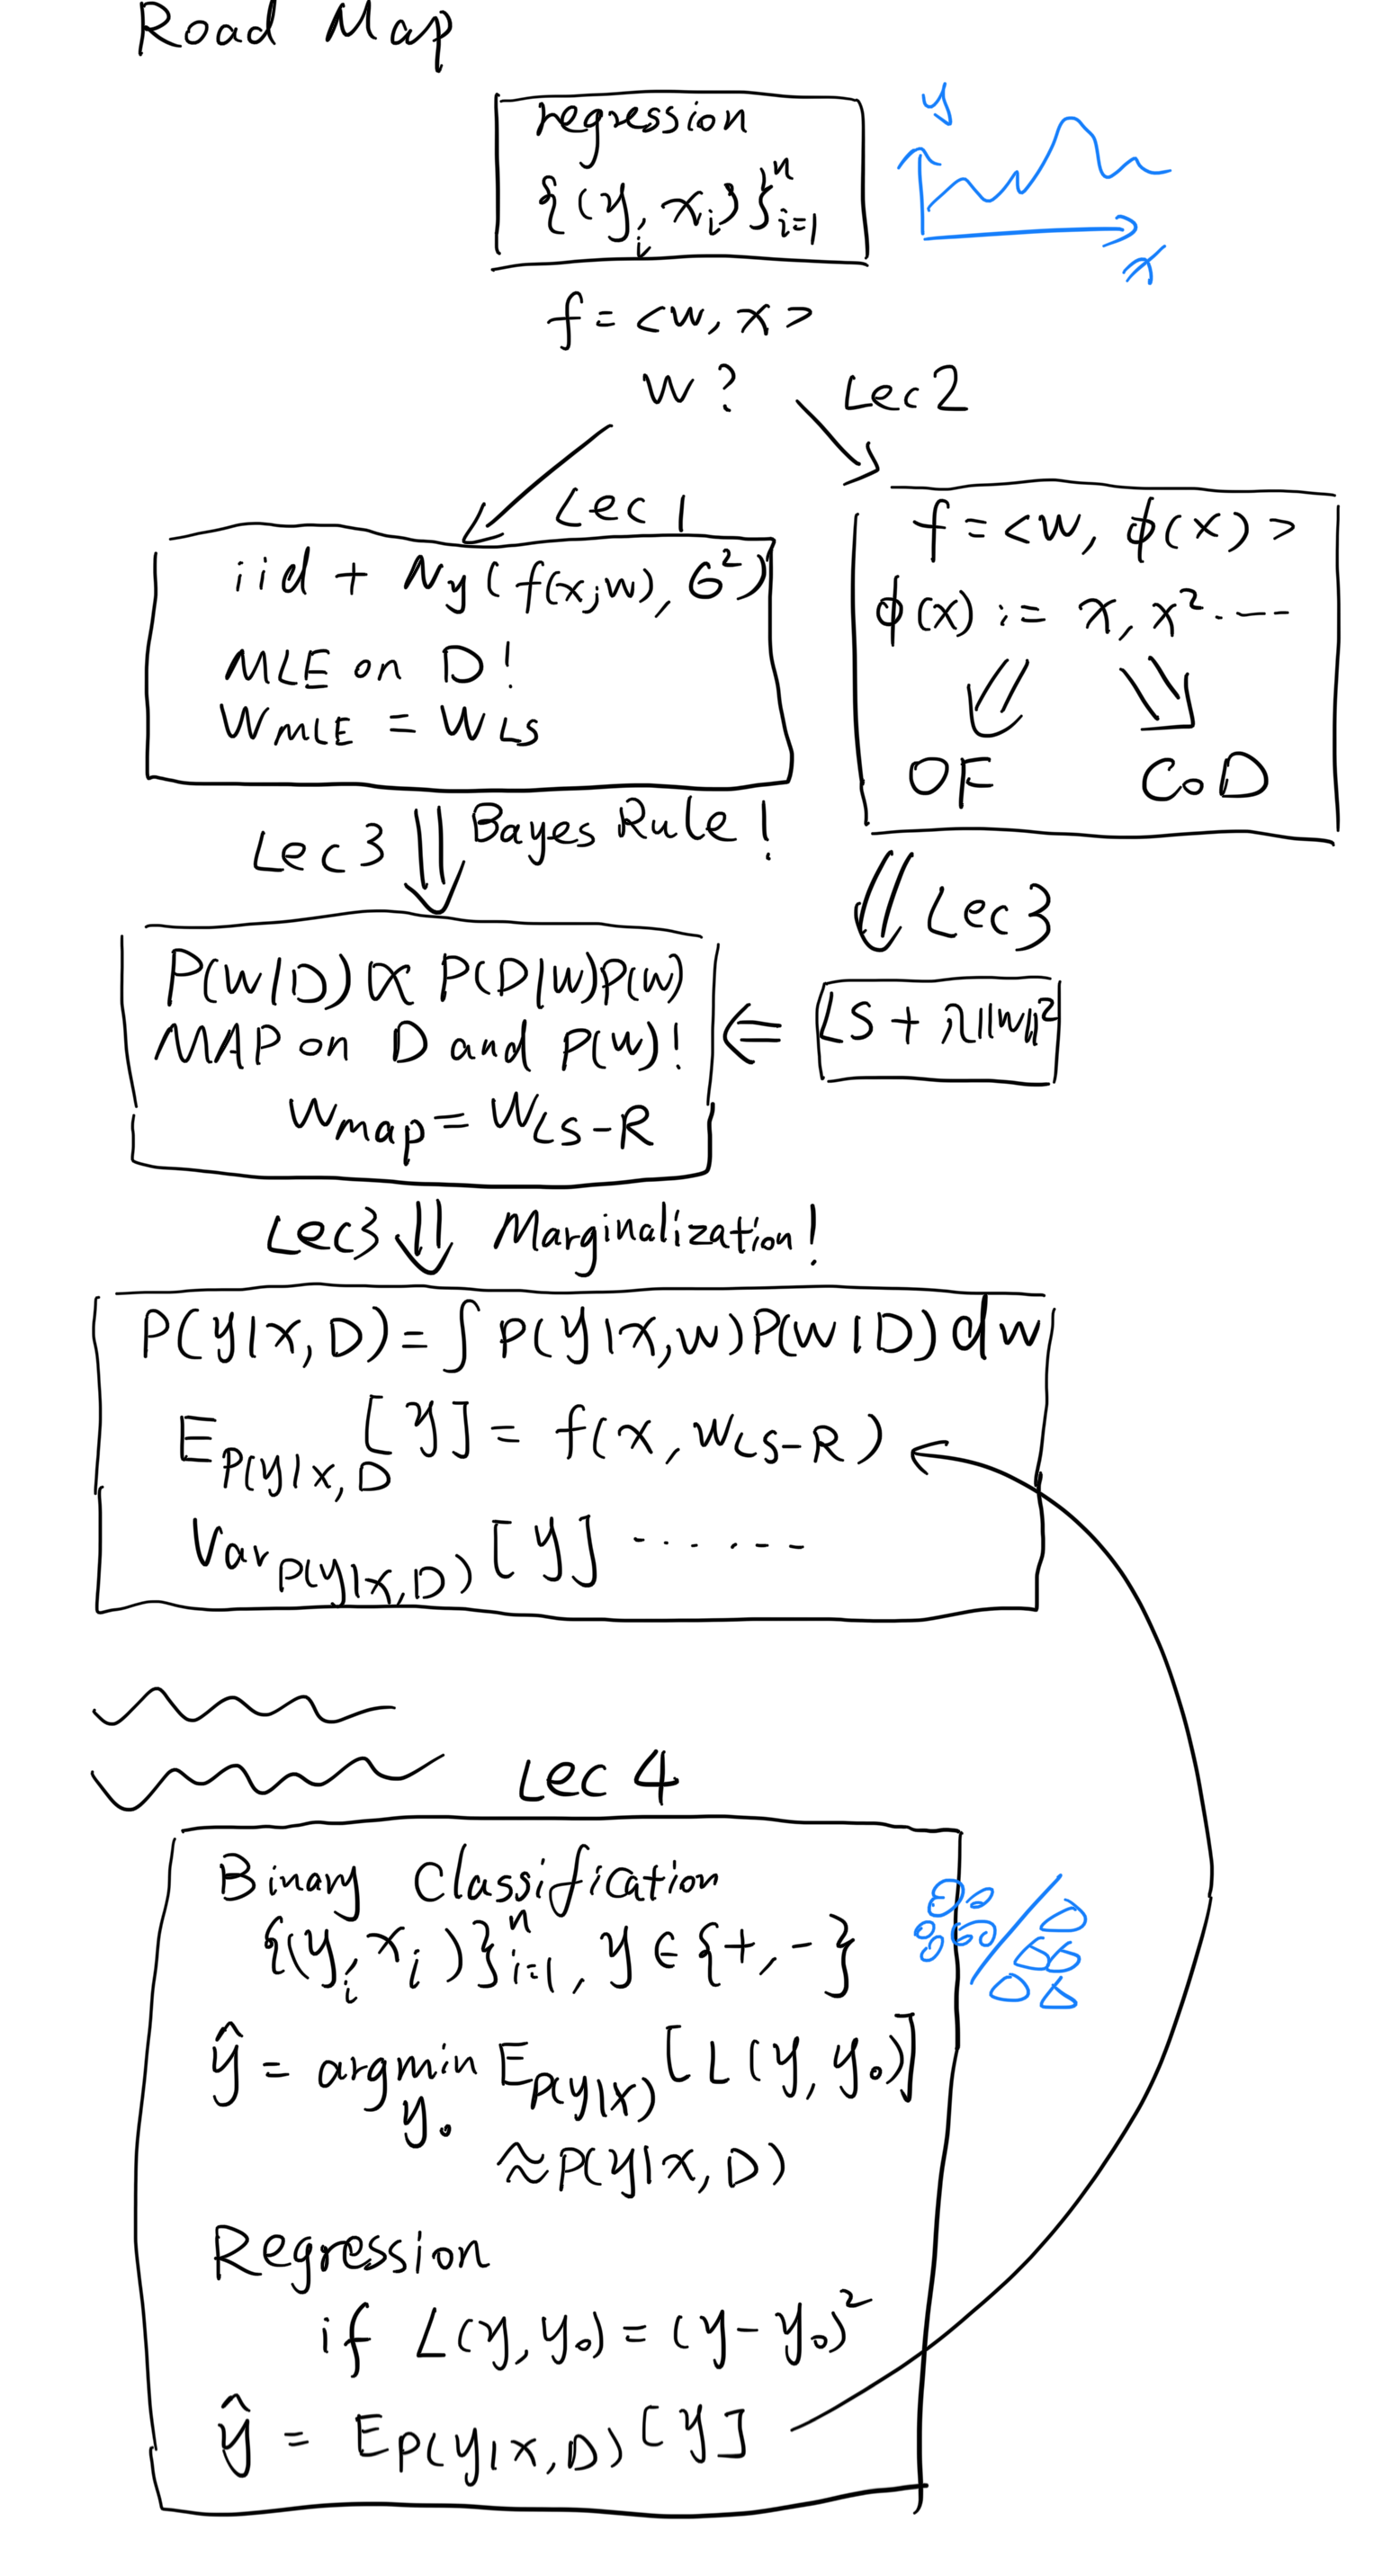 Road Map
regression
{(yᵢ, xᵢ)}ⁿᵢ₌₁
y
x
f = <w, x>
w?
Lec 2
Lec 1
iid + N_y(f(x;w), σ²)
MLE on D!
W_MLE = W_LS
f = <w, φ(x)>
φ(x) := x, x² ----
OF CoD
Lec 3 Bayes Rule!
Lec 3
P(w|D) ∝ P(D|w)P(w)
MAP on D and P(w)!
W_map = W_LS-R
LS + λ||w||²
Lec 3 Marginalization!
P(y|x, D) = ∫ P(y|x, w) P(w|D) dw
E_P(y|x, D [y] = f(x, W_LS-R)
Var_P(y|x, D) [y] ......
Lec 4
Binary Classification
{(yᵢ, xᵢ)}ⁿᵢ₌₁, y ∈ {+, -}
ŷ = argmin_y₀ E_P(y|x) [L(y, y₀)]
≈ P(y|x, D)
Regression
if L(y, y₀) = (y - y₀)²
ŷ = E_P(y|x, D) [y]